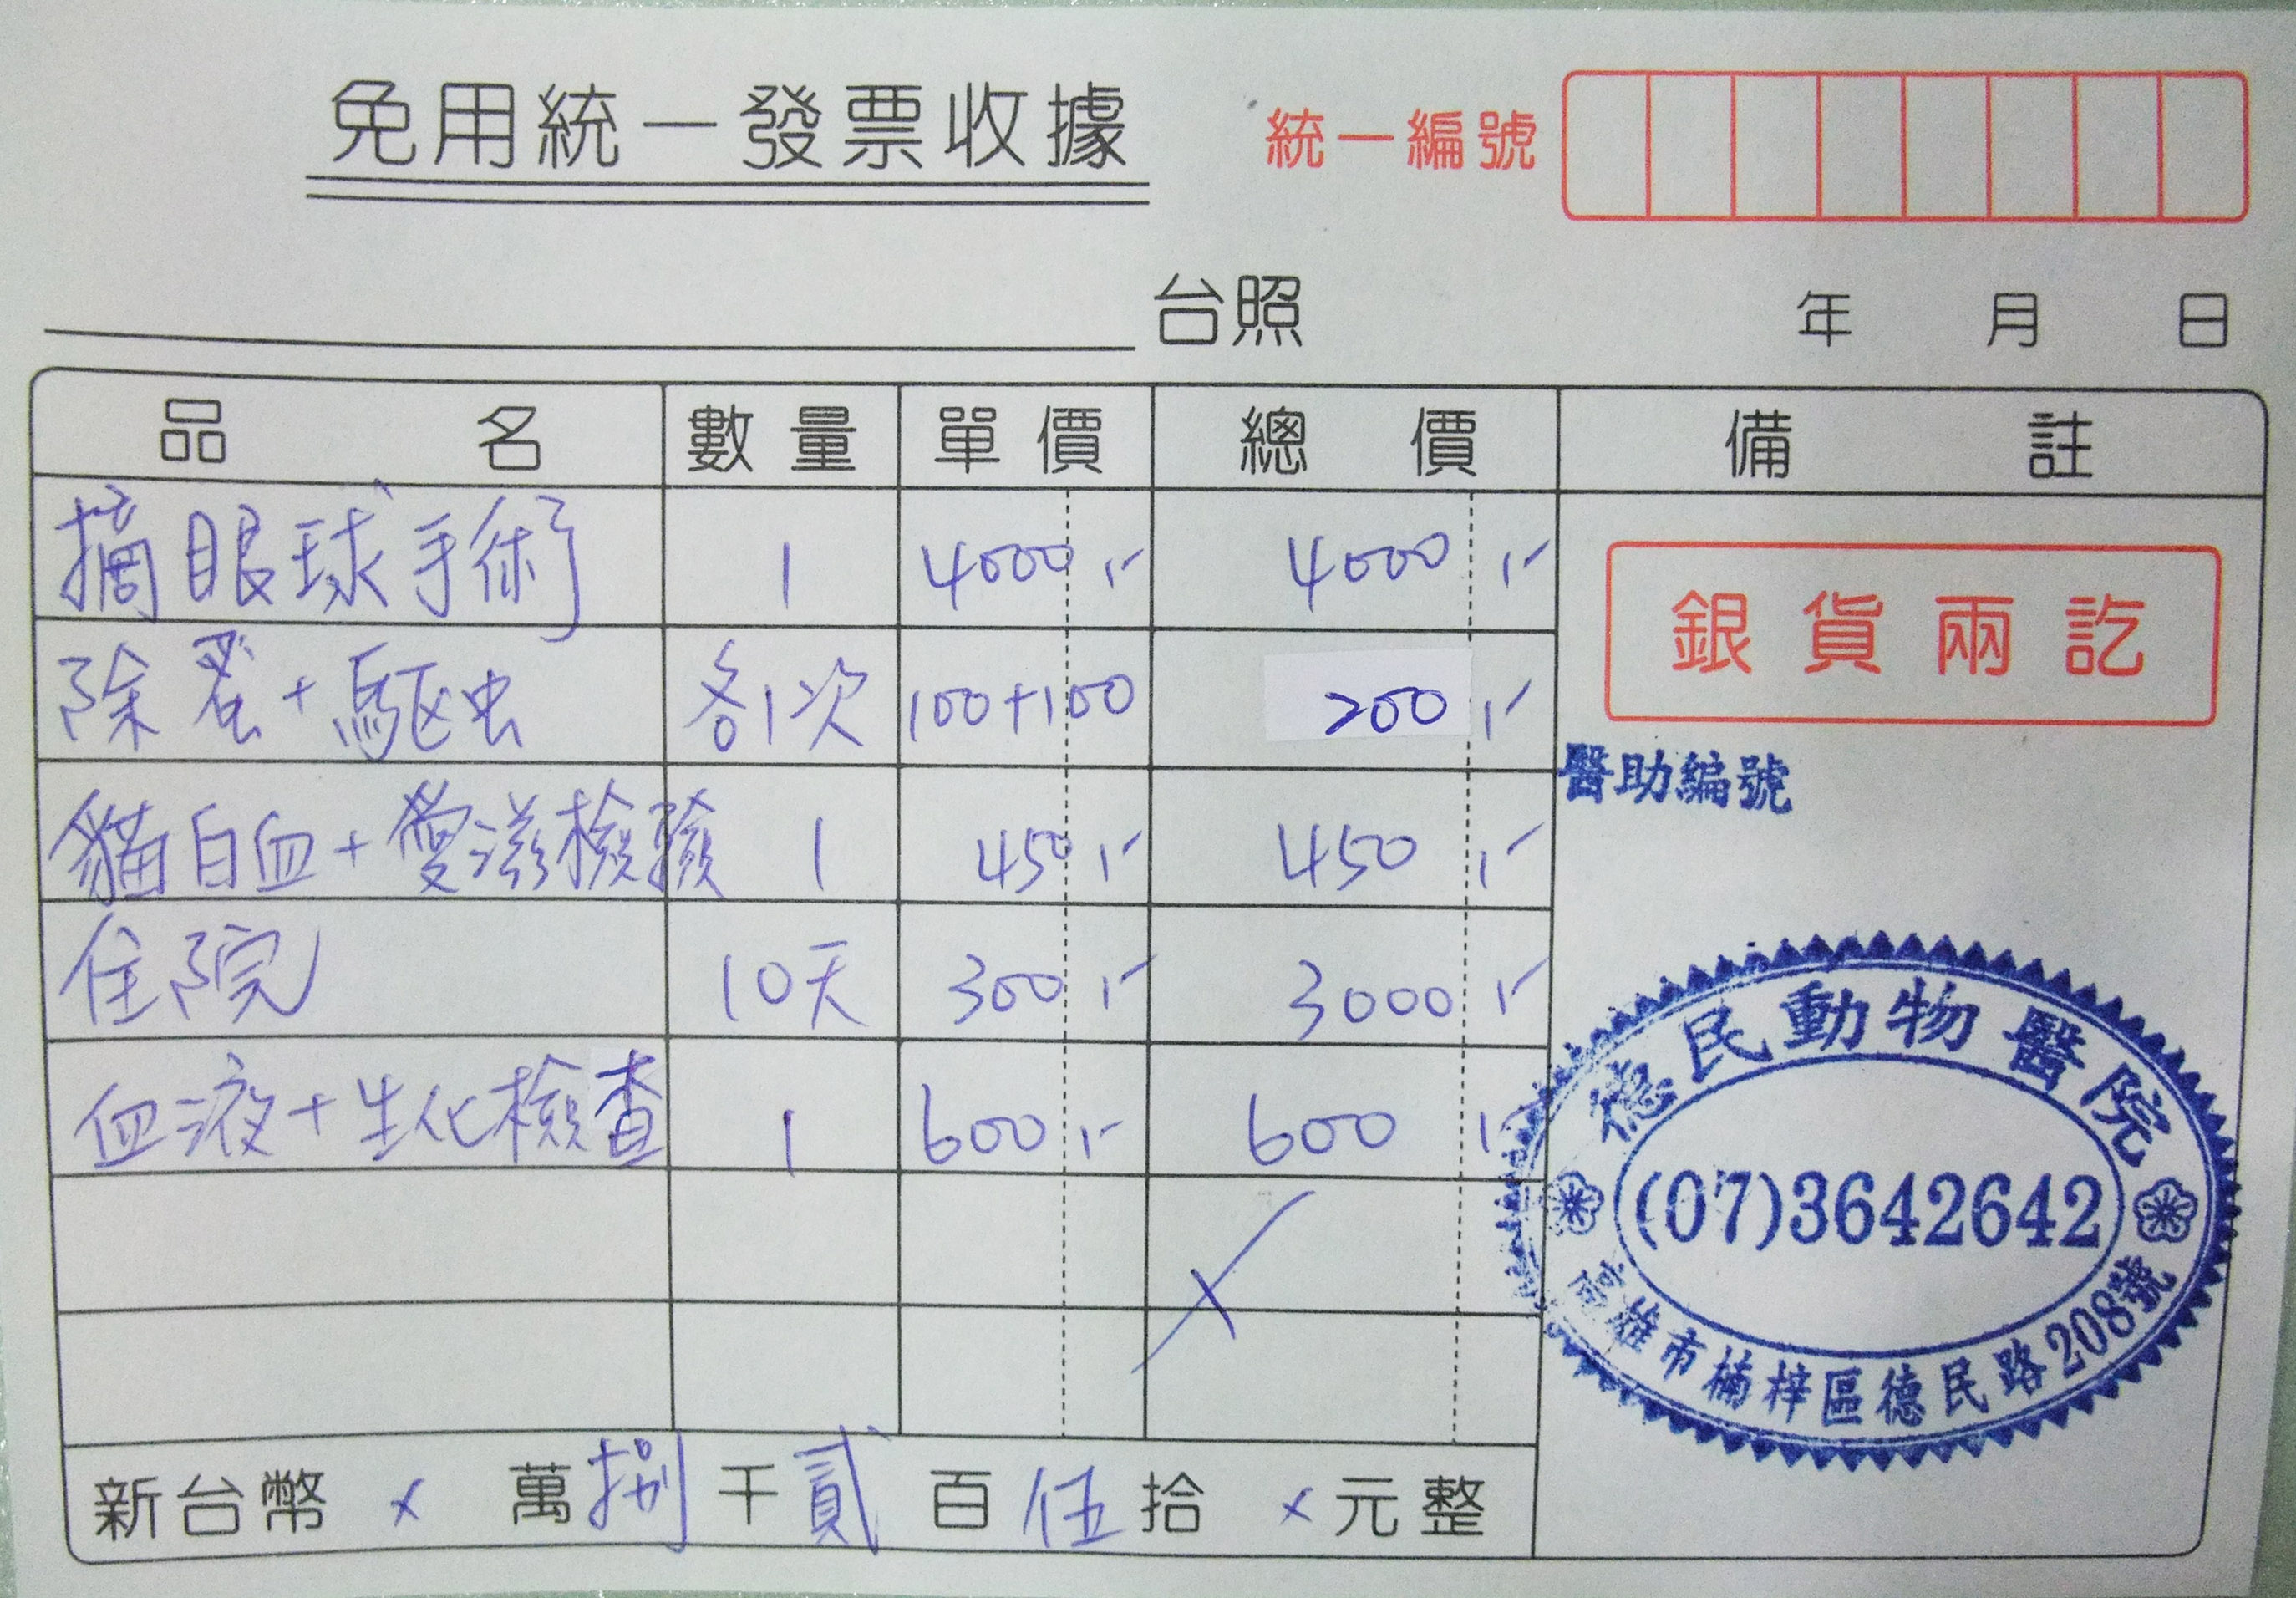 免用統一發票收據 統一編號
台照 年 月 日
品名 數量 單價 總價 備註
摘眼球手術 1 4000,- 4000,-
銀貨兩訖
除蚤+驅虫 各1次 100+100 200,-
醫助編號
貓白血+愛滋檢驗 1 450,- 450,-
住院 10天 300,- 3000,-
血液+生化檢查 1 600,- 600,-
德民動物醫院
(07)3642642
高雄市楠梓區德民路208號
新台幣 x 萬 捌 千 貳 百 伍 拾 x 元整